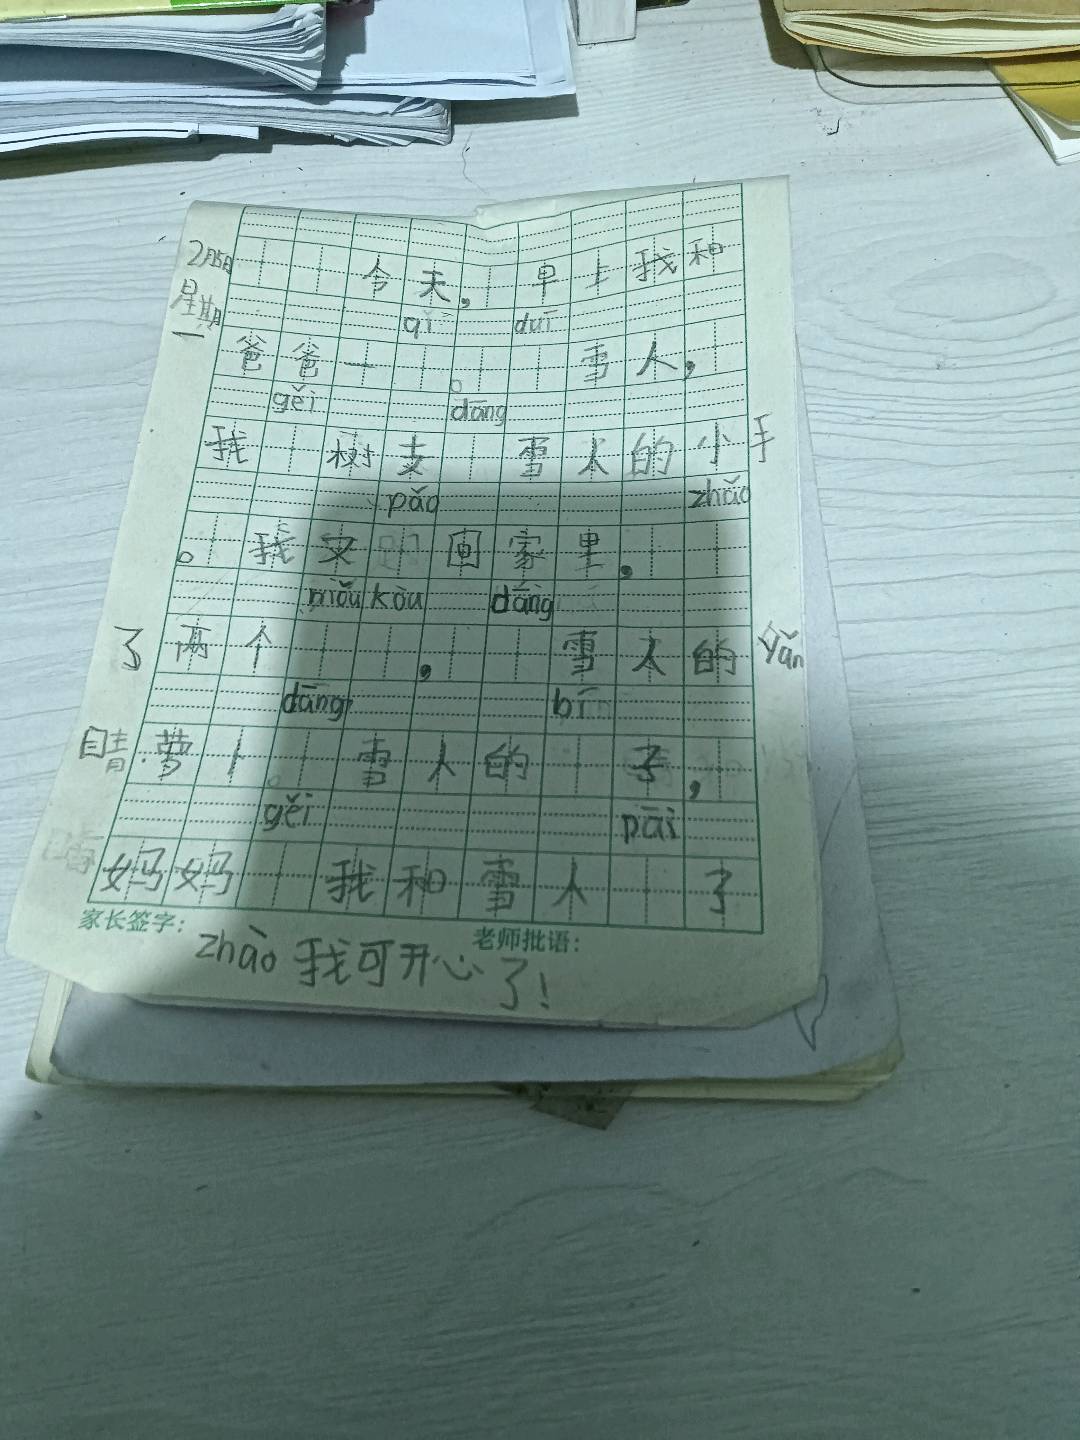 2月5日
星期一
今天，早上我和
qǐ duī
爸爸一雪人，
gěi 。 dāng
我树支雪人的小手
pǎo zhǎo
。我又跑回家里，
niǔ kòu dāng
了两个，雪人的yǎn
dāng bí
睛.萝卜。雪人的子，
gěi pāi
妈妈我和雪人了
家长签字： 老师批语：
zhào 我可开心了！